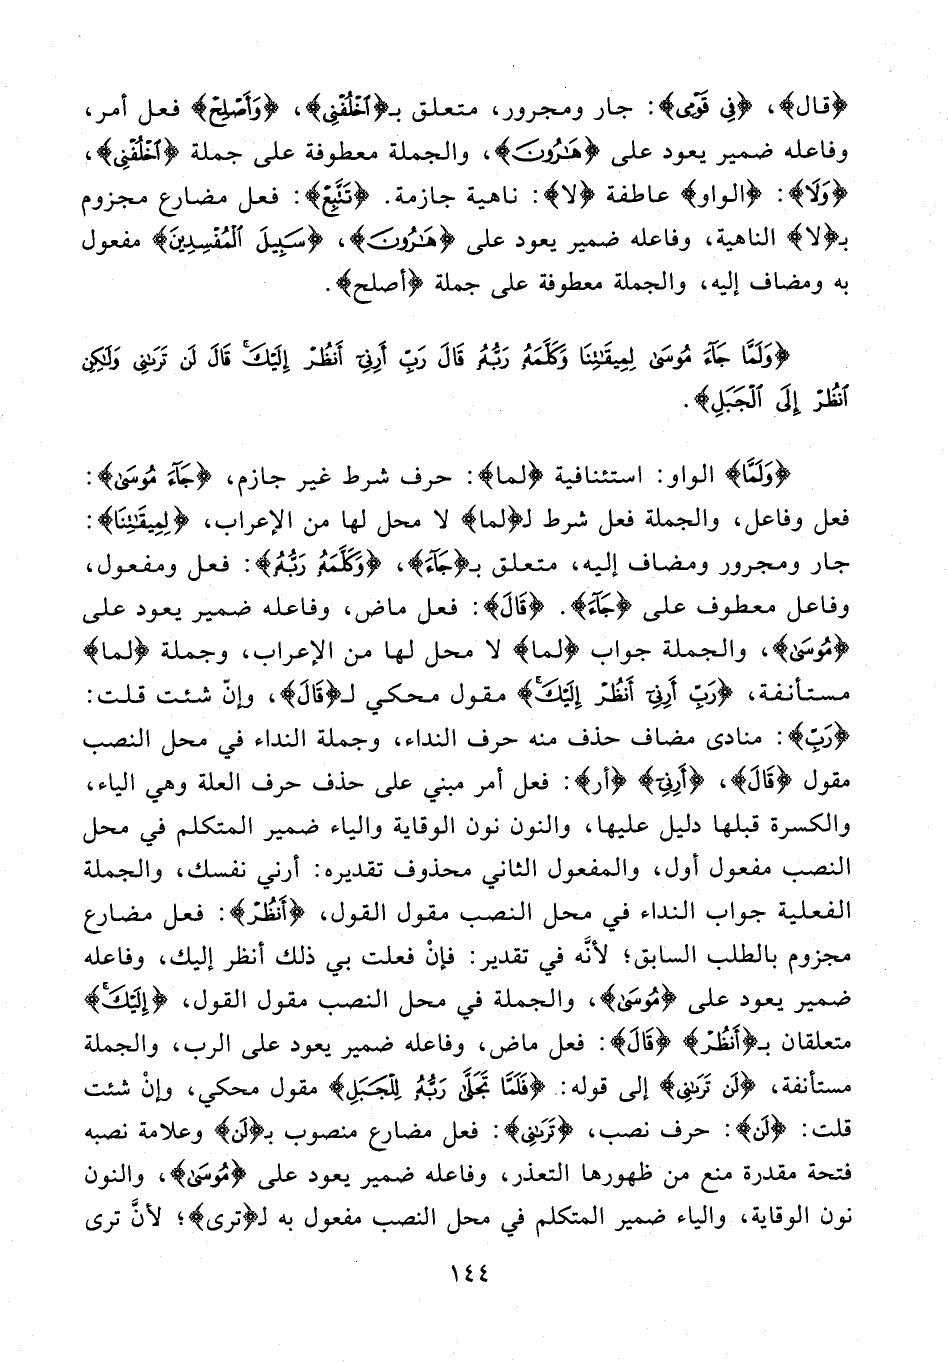 ﴿قال﴾، ﴿فِي قَوْمِي﴾: جار ومجرور، متعلق بـ﴿ٱخْلُفْنِي﴾، ﴿وَأَصْلِحْ﴾ فعل أمر،
وفاعله ضمير يعود على ﴿هَٰرُونَ﴾، والجملة معطوفة على جملة ﴿ٱخْلُفْنِي﴾،
﴿وَلَا﴾: ﴿الواو﴾ عاطفة ﴿لا﴾: ناهية جازمة. ﴿تَتَّبِعْ﴾: فعل مضارع مجزوم
بـ﴿لا﴾ الناهية، وفاعله ضمير يعود على ﴿هَٰرُونَ﴾، ﴿سَبِيلَ ٱلْمُفْسِدِينَ﴾ مفعول
به ومضاف إليه، والجملة معطوفة على جملة ﴿أصلح﴾.
﴿وَلَمَّا جَآءَ مُوسَىٰ لِمِيقَٰتِنَا وَكَلَّمَهُۥ رَبُّهُۥ قَالَ رَبِّ أَرِنِيٓ أَنظُرْ إِلَيْكَۚ قَالَ لَن تَرَىٰنِي وَلَٰكِنِ
ٱنظُرْ إِلَى ٱلْجَبَلِ﴾.
﴿وَلَمَّا﴾ الواو: استئنافية ﴿لما﴾: حرف شرط غير جازم، ﴿جَآءَ مُوسَىٰ﴾:
فعل وفاعل، والجملة فعل شرط لـ﴿لما﴾ لا محل لها من الإعراب، ﴿لِمِيقَٰتِنَا﴾:
جار ومجرور ومضاف إليه، متعلق بـ﴿جَآءَ﴾، ﴿وَكَلَّمَهُۥ رَبُّهُۥ﴾: فعل ومفعول،
وفاعل معطوف على ﴿جَآءَ﴾. ﴿قَالَ﴾: فعل ماض، وفاعله ضمير يعود على
﴿مُوسَىٰ﴾، والجملة جواب ﴿لما﴾ لا محل لها من الإعراب، وجملة ﴿لما﴾
مستأنفة، ﴿رَبِّ أَرِنِيٓ أَنظُرْ إِلَيْكَۚ﴾ مقول محكي لـ﴿قَالَ﴾، وإنّ شئت قلت:
﴿رَبِّ﴾: منادى مضاف حذف منه حرف النداء، وجملة النداء في محل النصب
مقول ﴿قَالَ﴾، ﴿أَرِنِيٓ﴾ ﴿أر﴾: فعل أمر مبني على حذف حرف العلة وهي الياء،
والكسرة قبلها دليل عليها، والنون نون الوقاية والياء ضمير المتكلم في محل
النصب مفعول أول، والمفعول الثاني محذوف تقديره: أرني نفسك، والجملة
الفعلية جواب النداء في محل النصب مقول القول، ﴿أَنظُرْ﴾: فعل مضارع
مجزوم بالطلب السابق؛ لأنَّه في تقدير: فإنْ فعلت بي ذلك أنظر إليك، وفاعله
ضمير يعود على ﴿مُوسَىٰ﴾، والجملة في محل النصب مقول القول، ﴿إِلَيْكَۚ﴾
متعلقان بـ﴿أَنظُرْ﴾ ﴿قَالَ﴾: فعل ماض، وفاعله ضمير يعود على الرب، والجملة
مستأنفة، ﴿لَن تَرَىٰنِي﴾ إلى قوله: ﴿فَلَمَّا تَجَلَّىٰ رَبُّهُۥ لِلْجَبَلِ﴾ مقول محكي، وإنْ شئت
قلت: ﴿لَن﴾: حرف نصب، ﴿تَرَىٰنِي﴾: فعل مضارع منصوب بـ﴿لَن﴾ وعلامة نصبه
فتحة مقدرة منع من ظهورها التعذر، وفاعله ضمير يعود على ﴿مُوسَىٰ﴾، والنون
نون الوقاية، والياء ضمير المتكلم في محل النصب مفعول به لـ﴿ترى﴾؛ لأنَّ ترى
١٤٤